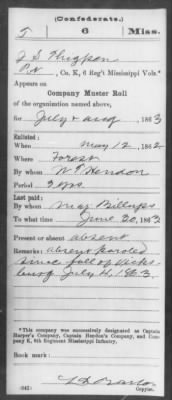 (Confederate.)
T 6 Miss.
J S Thigpen
Pvt, Co. K, 6 Reg't Mississippi Vols.*
Appears on
Company Muster Roll
of the organization named above,
for July & Aug, 1863
Enlisted:
When May 12, 1862
Where Forest
By whom W. T. Hendon
Period 3 yrs
Last paid:
By whom Maj Billups
To what time June 30, 1863
Present or absent absent
Remarks: absent paroled
since fall of Vicks-
burg July 4, 1863.
*This company was successively designated as Captain
Harper's Company, Captain Hendon's Company, and Com-
pany K, 6th Regiment Mississippi Infantry.
Book mark:
(642)
Copyist.